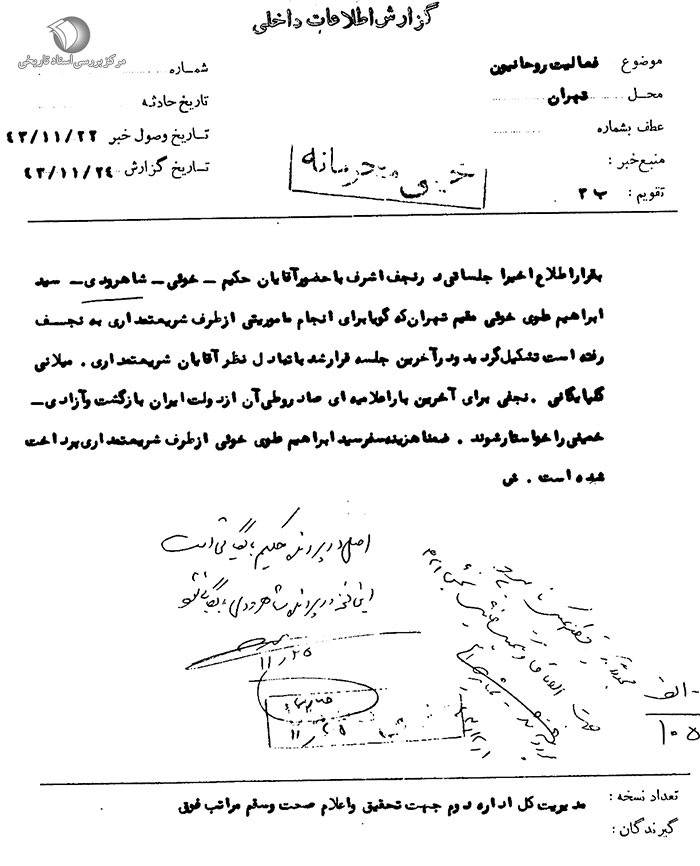 گزارش اطلاعات داخلی
مرکز بررسی اسناد تاریخی
موضوع فعالیت روحانیون
محل تهران
عطف بشماره
منبع خبر :
تقویم : ب ۳
شماره
تاریخ حادثه
تاریخ وصول خبر ۴۳/۱۱/۲۲
تاریخ گزارش ۴۳/۱۱/۲۴
خیلی محرمانه
بقرار اطلاع اخیرا جلساتی در نجف اشرف با حضور آقایان حکیم ـ خوئی ـ شاهرودی ـ سید
ابراهیم علوی خوئی مقیم تهران که گویا برای انجام ماموریتی از طرف شریعتمداری به نجف
رفته است تشکیل گردید و در آخرین جلسه قرار شد با تبادل نظر آقایان شریعتمداری . میلانی
گلپایگانی . نجفی برای آخرین بار اعلامیه ای صادر و طی آن از دولت ایران بازگشت و آزادی ـ
خمینی را خواستار شوند . ضمنا هزینه سفر سید ابراهیم علوی خوئی از طرف شریعتمداری پرداخت
شده است . ش
اصل در پرونده حکیم بایگانی است
این نسخه در پرونده شاهرودی بایگانی شود
۱۱/۲۵
۱۱/۲۵
الف -
۱۰۵
تعداد نسخه :
گیرندگان :
مدیریت کل اداره دوم جهت تحقیق و اعلام صحت و سقم مراتب فوق